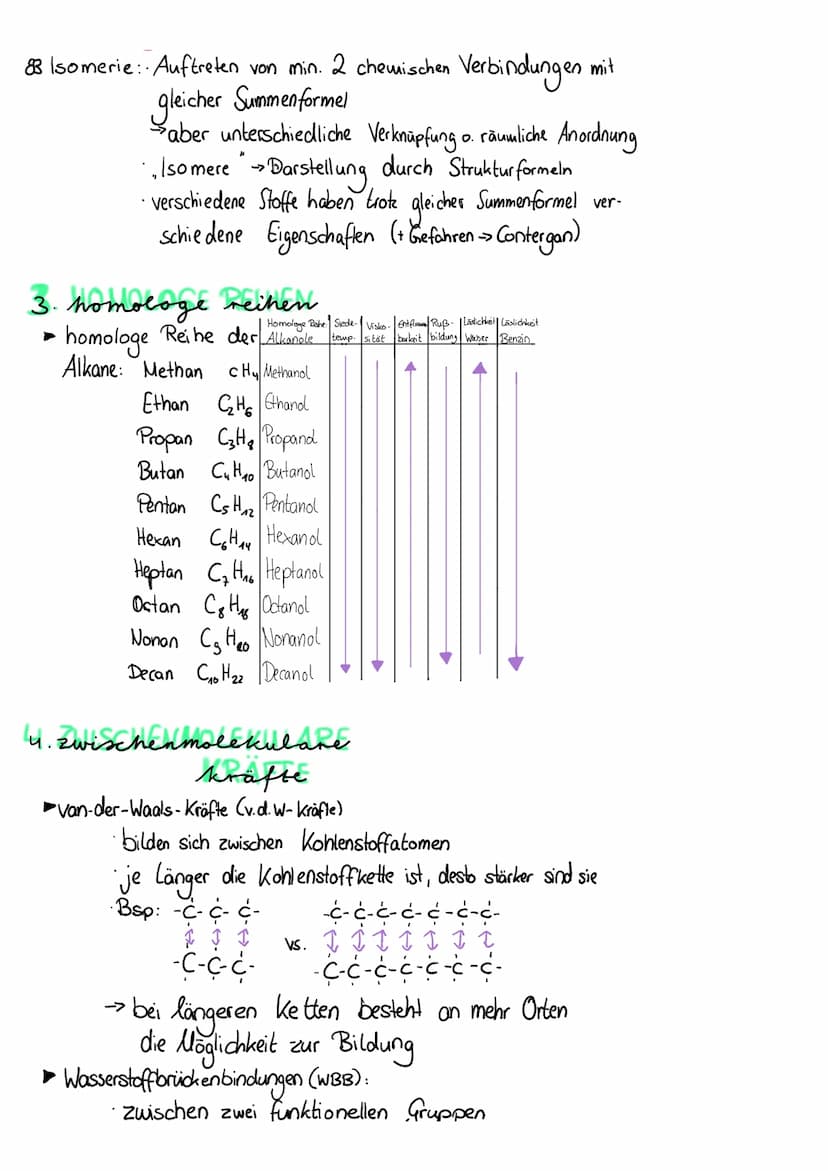 §3 Isomerie: · Auftreten von min. 2 chemischen Verbindungen mit
gleicher Summenformel
→ aber unterschiedliche Verknüpfung o. räumliche Anordnung
· „Isomere" → Darstellung durch Strukturformeln
· verschiedene Stoffe haben trotz gleicher Summenformel ver-
schiedene Eigenschaften (+ Gefahren → Contergan)
3. HOMOLOGE REIHEN
3. homologe reihen
▸ homologe Reihe der
Alkane: Methan CH4
Ethan C2H6
Propan C3H8
Butan C4H10
Pentan C5H12
Hexan C6H14
Heptan C7H16
Octan C8H18
Nonan C9H20
Decan C10H22
Homologe Reihe Alkanole | Siede-temp. | Visko-sität | Entflammbarkeit | Ruß-bildung | Löslichkeit Wasser | Löslichkeit Benzin
Methanol
Ethanol
Propanol
Butanol
Pentanol
Hexanol
Heptanol
Octanol
Nonanol
Decanol
4. ZWISCHENMOLEKULARE
4. zwischenmolekulare
KRÄFTE
kräfte
▸ van-der-Waals-Kräfte (v.d.W-Kräfte)
· bilden sich zwischen Kohlenstoffatomen
· je länger die Kohlenstoffkette ist, desto stärker sind sie
· Bsp: -C-C-C- -C-C-C-C-C-C-C-
vs.
-C-C-C- -C-C-C-C-C-C-C-
→ bei längeren Ketten besteht an mehr Orten
die Möglichkeit zur Bildung
▸ Wasserstoffbrückenbindungen (WBB):
· zwischen zwei funktionellen Gruppen